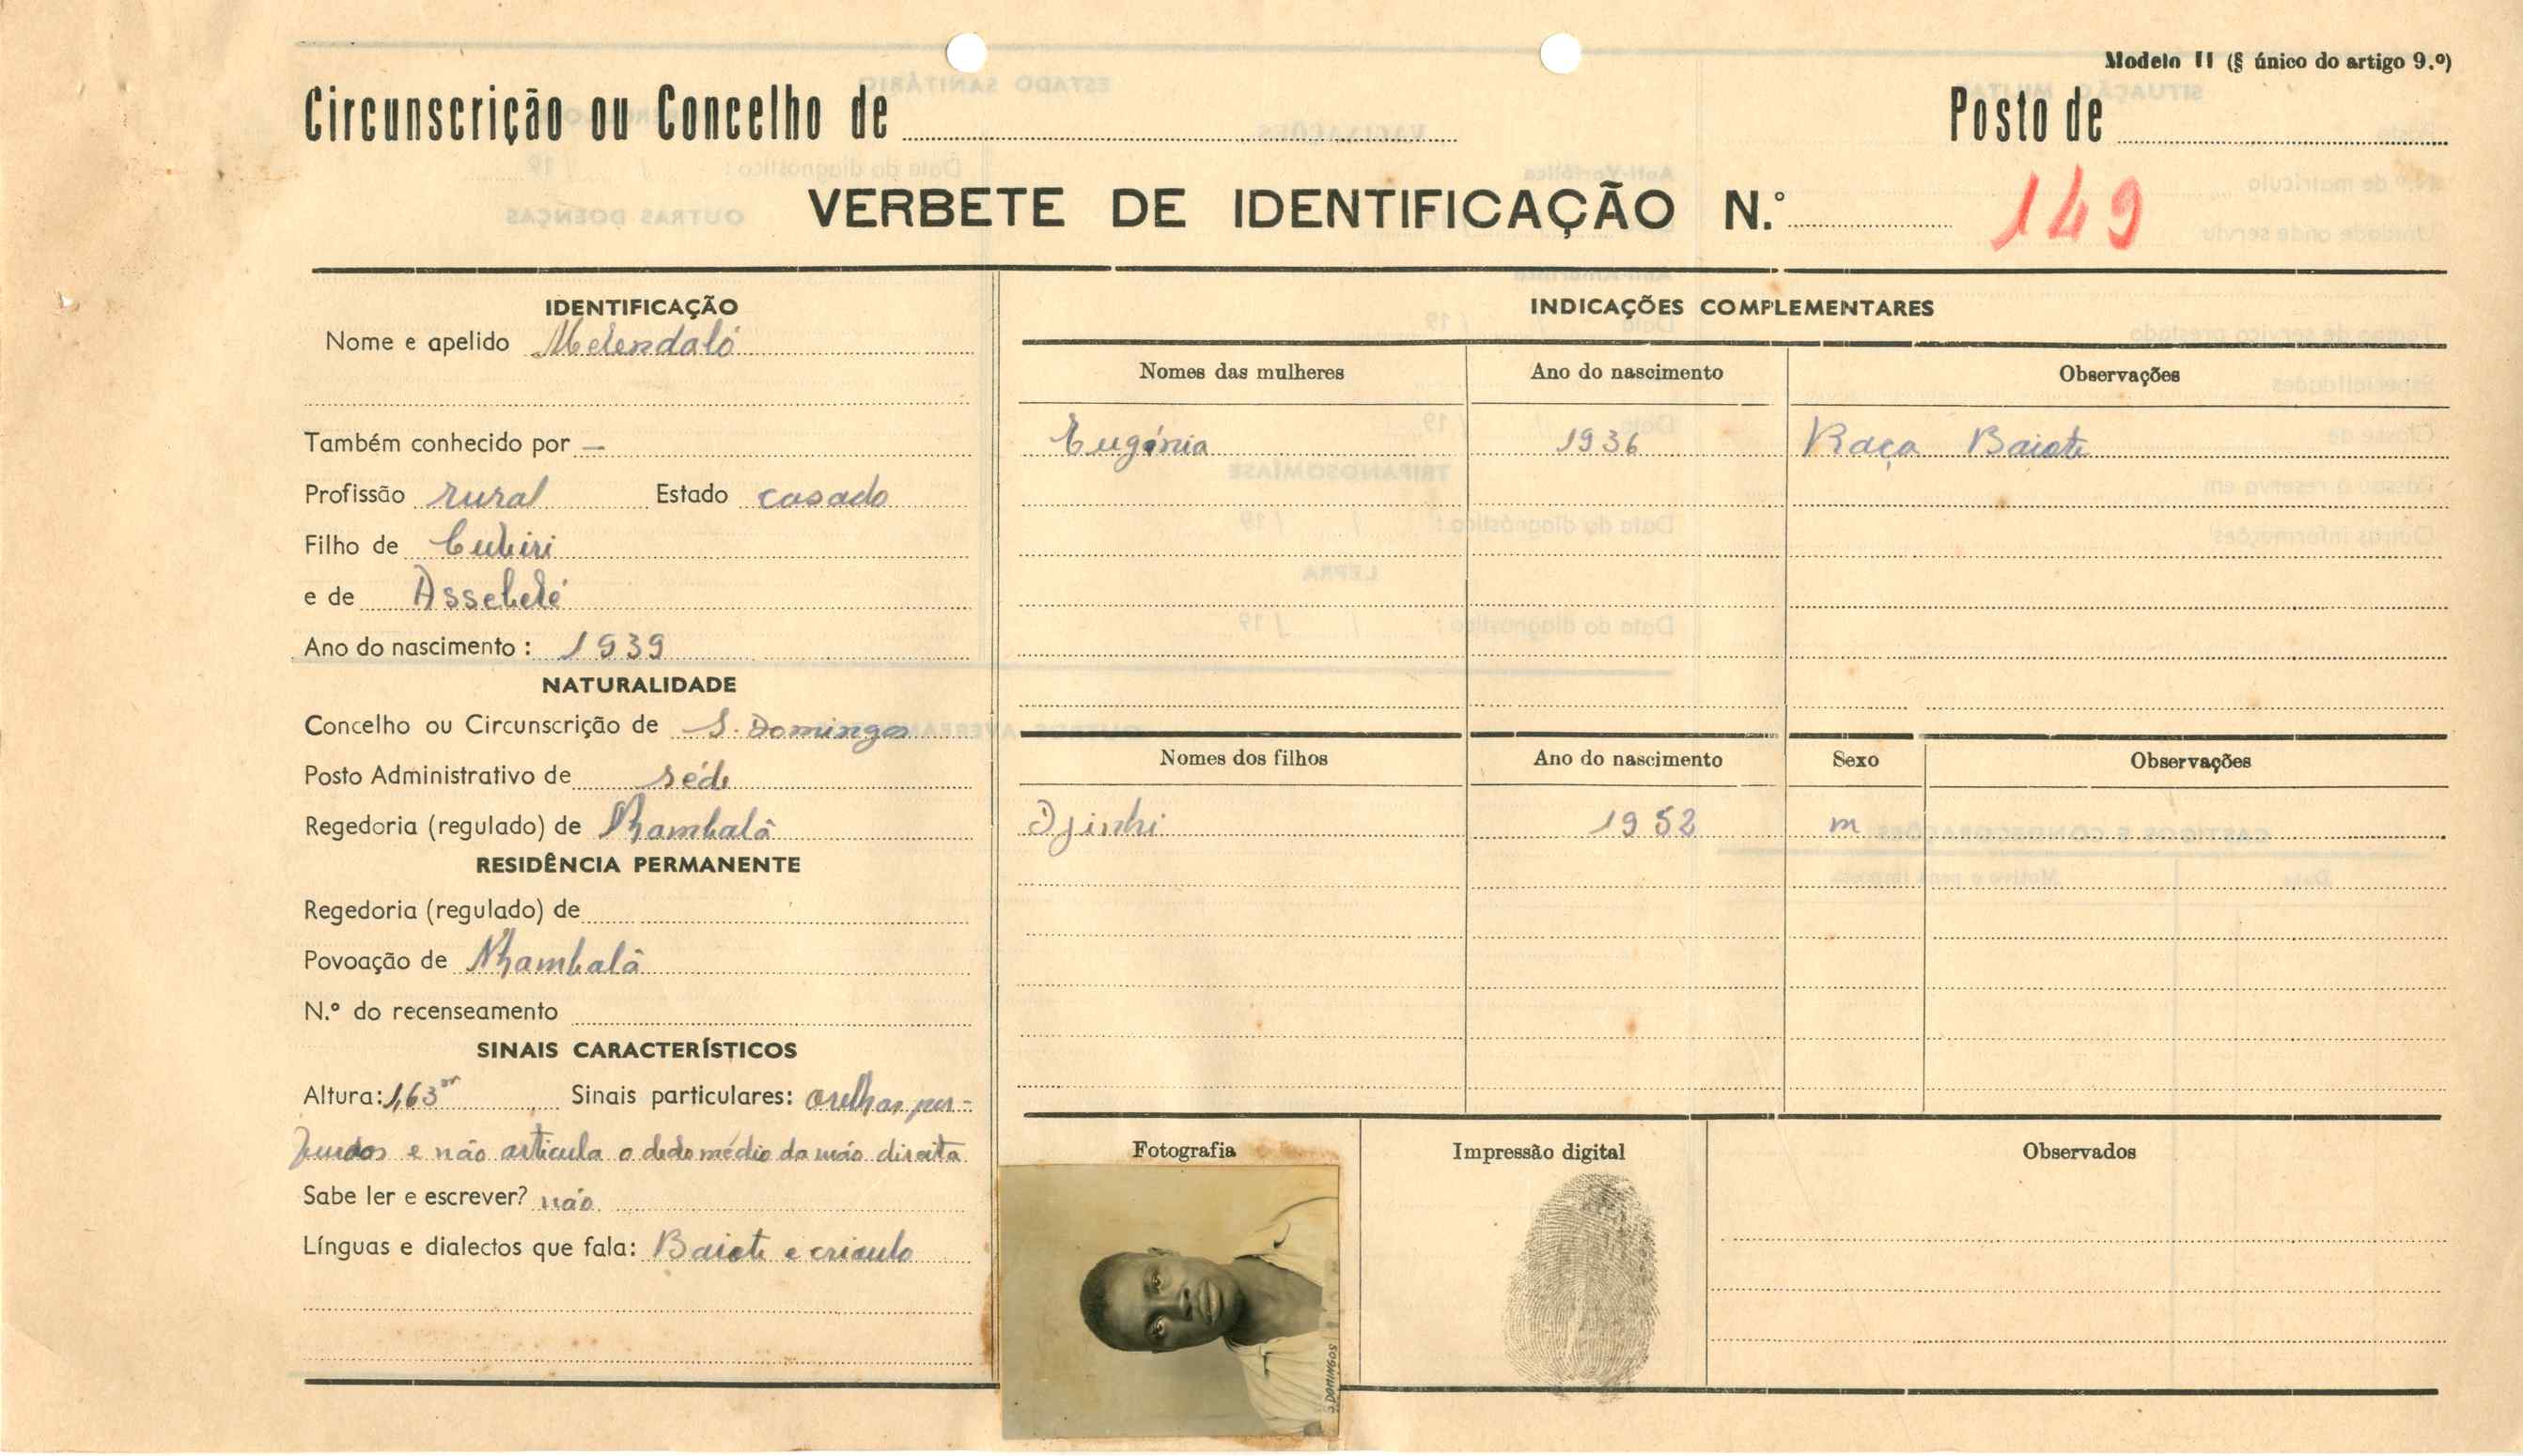 Modelo II (§ único do artigo 9.º)
Circunscrição ou Concelho de
Posto de
VERBETE DE IDENTIFICAÇÃO N.º 149
IDENTIFICAÇÃO
Nome e apelido Melendaló
Também conhecido por —
Profissão rural Estado casado
Filho de
e de
Ano do nascimento: 1939
NATURALIDADE
Concelho ou Circunscrição de S. Domingos
Posto Administrativo de séde
Regedoria (regulado) de Nhambalã
RESIDÊNCIA PERMANENTE
Regedoria (regulado) de
Povoação de Nhambalã
N.º do recenseamento
SINAIS CARACTERÍSTICOS
Altura: 1,63m Sinais particulares: orelhas per-
furadas e não articula o dedo médio da mão direita
Sabe ler e escrever? não
Línguas e dialectos que fala: Baiote e crioulo
INDICAÇÕES COMPLEMENTARES
Nomes das mulheres Ano do nascimento Observações
Eugénia 1936 Raça Baiote
Nomes dos filhos Ano do nascimento Sexo Observações
Djinhi 1952 m
Fotografia Impressão digital Observados
S. DOMINGOS